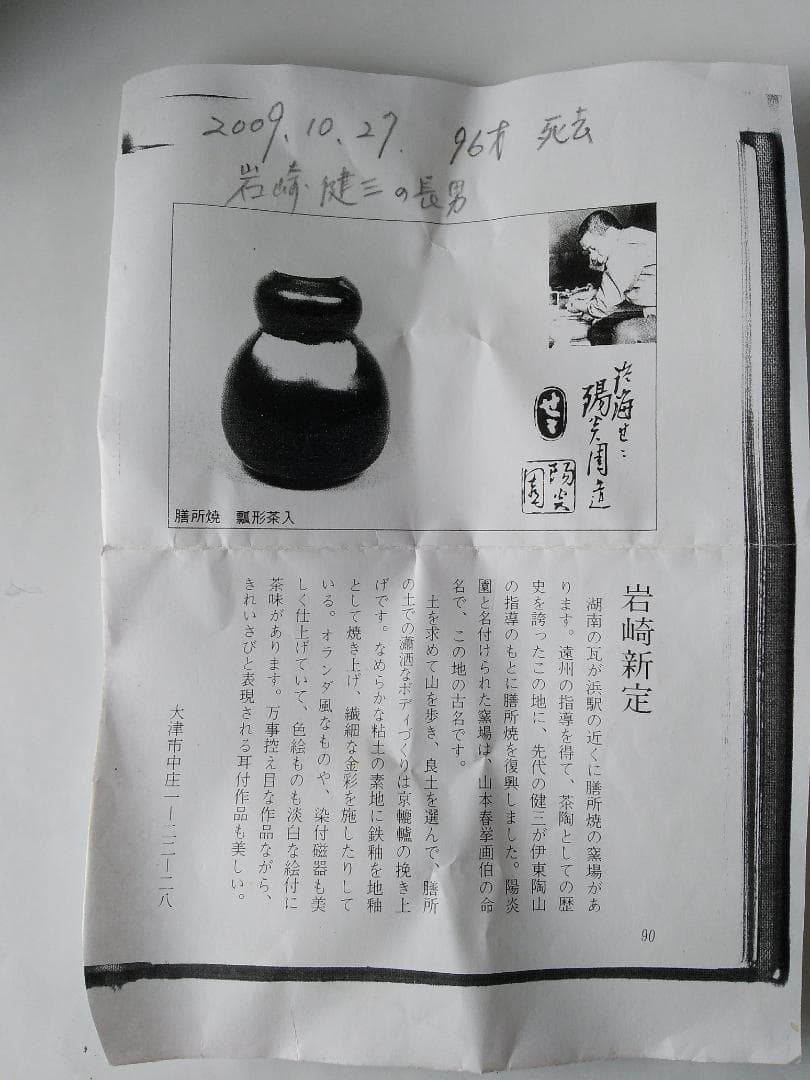 2009.10.27. 96才 死去
岩崎健三の長男
膳所焼　瓢形茶入
陽炎園造
陽炎園
岩崎新定
湖南の瓦が浜駅の近くに膳所焼の窯場があ
ります。遠州の指導を得て、茶陶としての歴
史を誇ったこの地に、先代の健三が伊東陶山
の指導のもとに膳所焼を復興しました。陽炎
園と名付けられた窯場は、山本春挙画伯の命
名で、この地の古名です。
土を求めて山を歩き、良土を選んで、膳所
の土での瀟洒なボディづくりは京轆轤の挽き上
げです。なめらかな粘土の素地に鉄釉を地釉
として焼き上げ、繊細な金彩を施したりして
いる。オランダ風なものや、染付磁器も美
しく仕上げていて、色絵ものも淡白な絵付に
茶味があります。万事控え目な作品ながら、
きれいさびと表現される耳付作品も美しい。
大津市中庄一ー二二ー二八
90